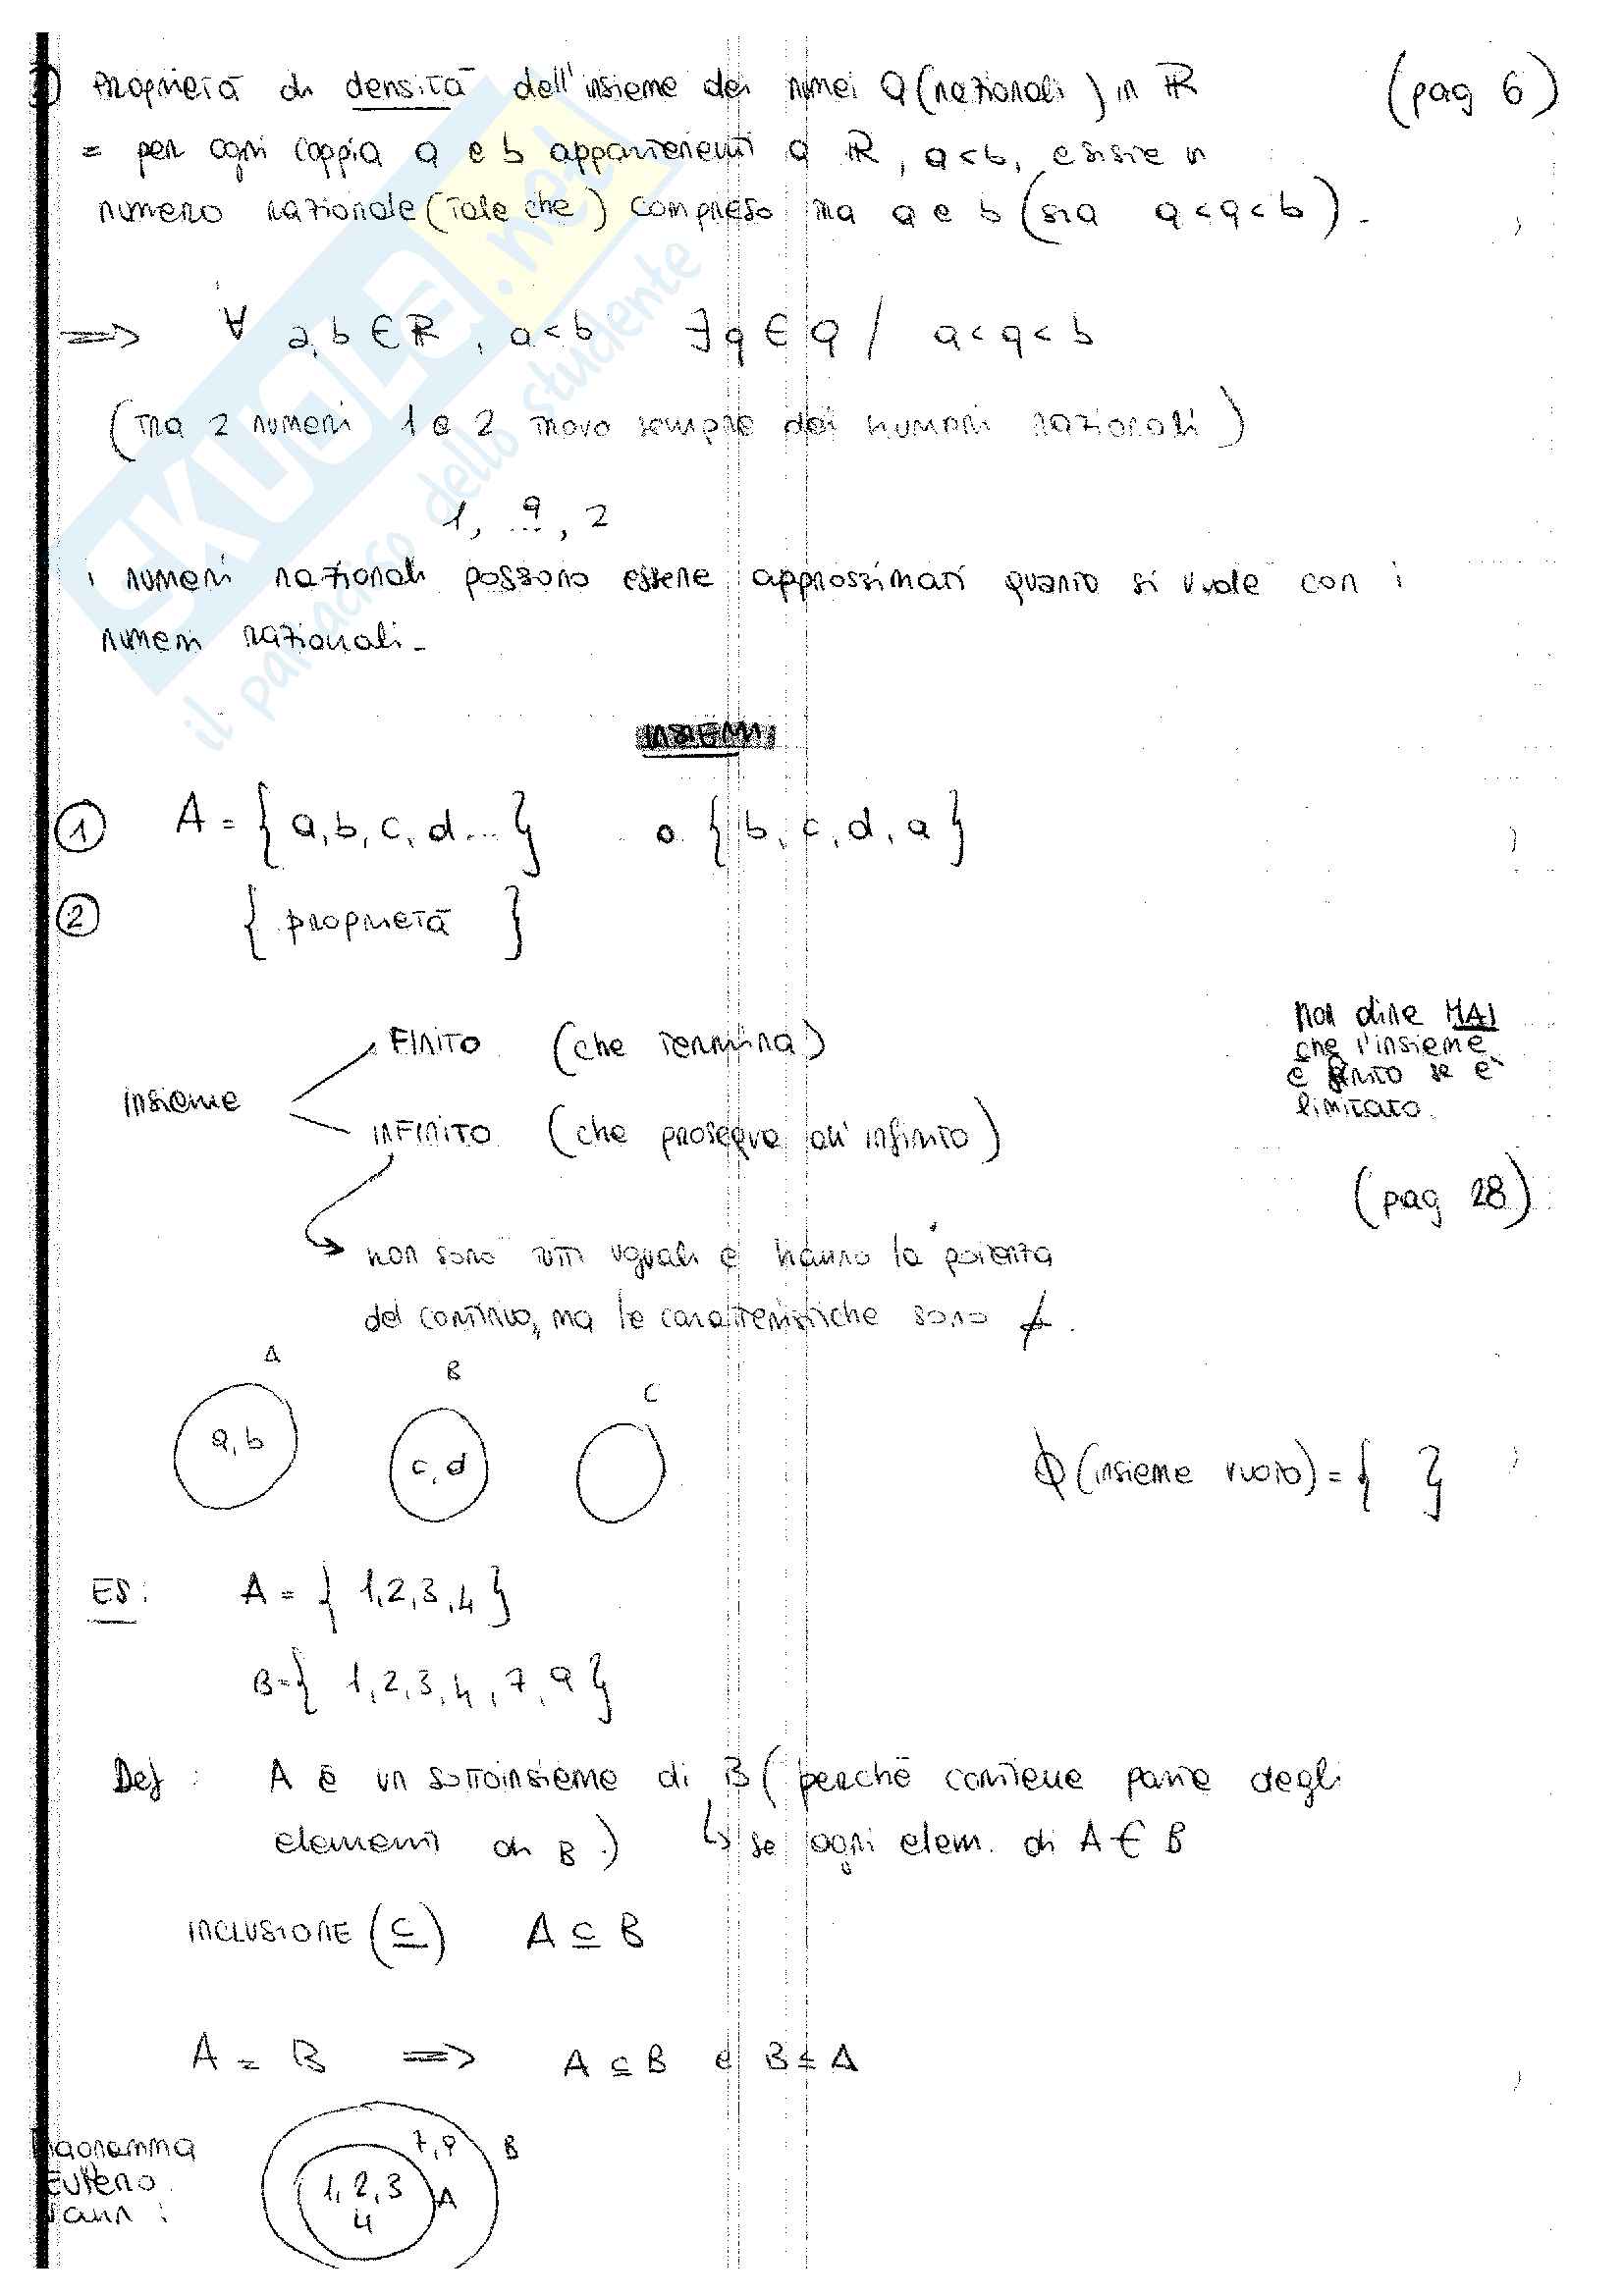 Proprietà di densità dell'insieme dei numei Q (razionali) in ℝ (pag 6)
= per ogni coppia a e b appartenenti a ℝ, a<b, esiste n
numero razionale (tale che) compreso tra a e b (sia a<q<b).
⟹ ∀ a,b ∈ ℝ, a<b ∃q ∈ Q / a<q<b
(tra 2 numeri 1 e 2 trovo sempre dei numeri razionali)
1, q..., 2
i numeri razionali possono essere approssimati quanto si vuole con i
numeri razionali.
INSIEMI
① A = { a, b, c, d... } o { b, c, d, a }
② { proprietà }
non dire MAI
che l'insieme
è finito se è
limitato.
FINITO (che termina)
insieme
INFINITO (che prosegue all'infinito)
(pag 28)
non sono tutti uguali e hanno la potenza
del continuo, ma le caratteristiche sono ≠.
A B C
a, b c, d
∅ (insieme vuoto) = { }
ES: A = { 1,2,3,4 }
B = { 1,2,3,4,7,9 }
Def: A è un sottoinsieme di B (perchè contiene parte degli
elementi di B.) ↳ se ogni elem. di A ∈ B
INCLUSIONE (⊆) A ⊆ B
A = B ⟹ A ⊆ B e B ⊆ A
7,9 B
1, 2, 3 A
4
SKUOLA.net
il paradiso dello studente